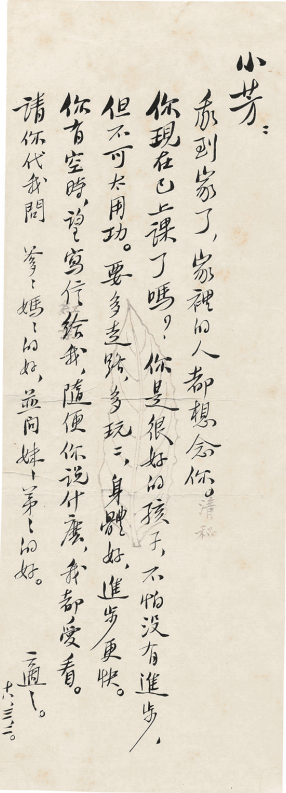 小芳：
我到家了，家裡的人都想念你。
你現在已上課了嗎？你是很好的孩子，不怕沒有進步，
但不可太用功。要多走路，多玩玩，身體好，進步更快。
你有空時，望寫信給我，隨便你說什麼，我都愛看。
請你代我問 爹爹媽媽的好，並問妹妹弟弟的好。
適之。
十八，三，二。
清秘